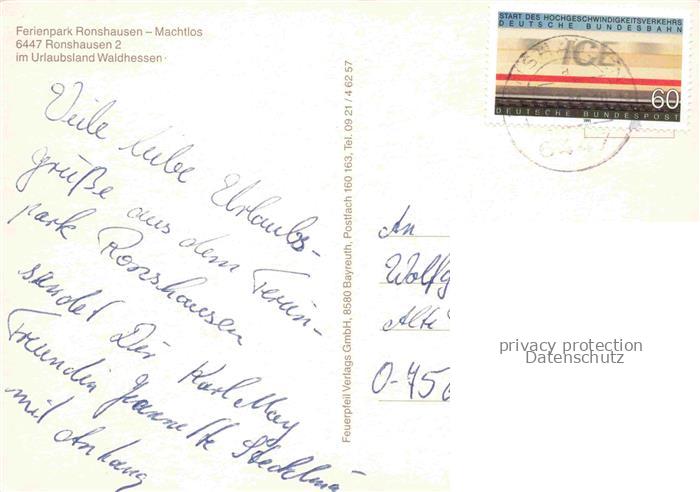 Ferienpark Ronshausen – Machtlos
6447 Ronshausen 2
im Urlaubsland Waldhessen
START DES HOCHGESCHWINDIGKEITSVERKEHRS
DEUTSCHE BUNDESBAHN
ICE
60
DEUTSCHE BUNDESPOST
6447
Viele liebe Urlaubs-
grüße aus dem Ferien-
park Ronshausen
sendet Dir Karl May
Freundin Jeannette
mit Anhang
Feuerpfeil Verlags GmbH, 8580 Bayreuth, Postfach 160 163, Tel. 09 21 / 4 62 57
An
Wolfg
Alte
O-756
privacy protection
Datenschutz